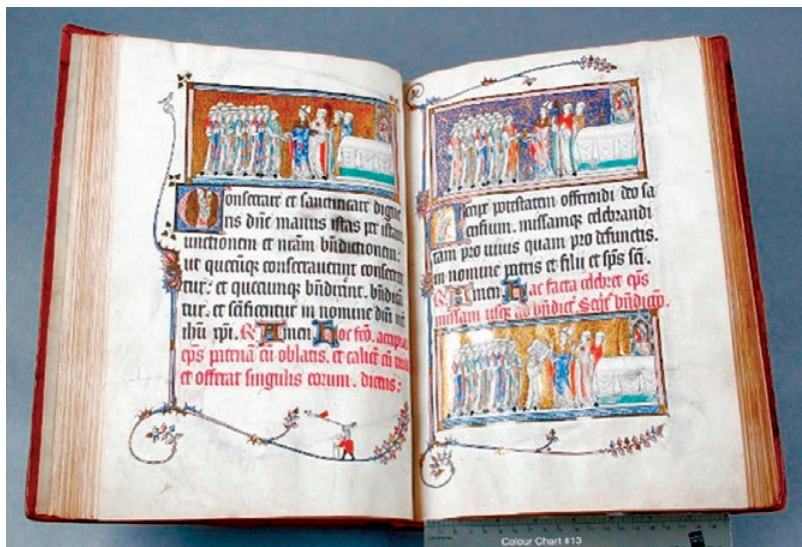 Consecrare et sanctificare digne
ris dñe manus istas per istam
unctionem et nr̃am bñdictionem:
ut quecũq; consecrauerint consecren
tur: et quecumq; bñdixerint. bñdican
tur. et sc̃ificentur in nomine dñi nr̃i
ihũ xpi. R̃ Amen Hoc fc̃o. accipiat
ep̃s patenã cũ oblatis. et calicẽ cũ
et offerat singulis eorum. dicens:
Accipe potestatem offerendi deo sa
crificium. missamq; celebrandi
tam pro uiuis quam pro defunctis.
in nomine patris et filii et sp̃s sc̃i.
R̃ Amen Hac facta celebret ep̃s
missam usq; ad bñdict̃
Colour Chart #13